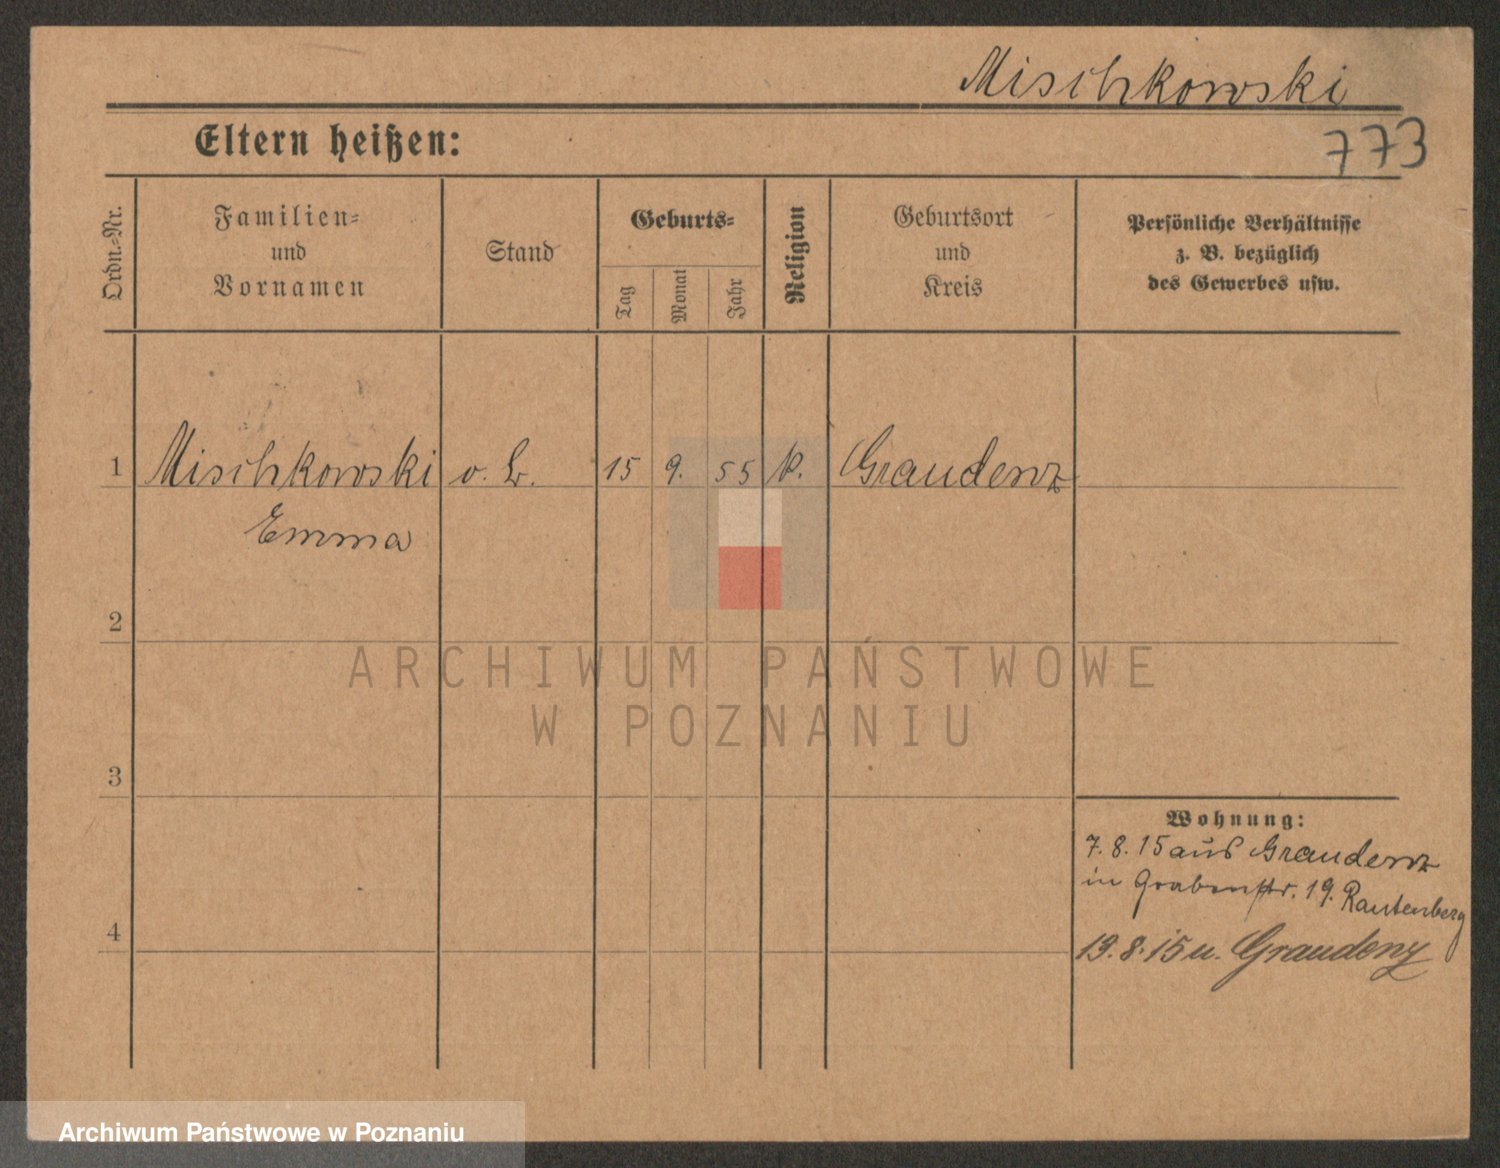 Mischkowski
773
Eltern heißen:
Ordn.-Nr.
Familien-
und
Vornamen
Stand
Geburts-
Tag
Monat
Jahr
Religion
Geburtsort
und
Kreis
Persönliche Verhältnisse
z. B. bezüglich
des Gewerbes usw.
1 Mischkowski o. 15 9. 55 k. Graudenz
Emma
2
3
4
Wohnung:
7. 8. 15 aus Graudenz
in Grabenstr. 19. Rautenberg
13. 8. 15 n. Graudenz
ARCHIWUM PAŃSTWOWE
W POZNANIU
Archiwum Państwowe w Poznaniu